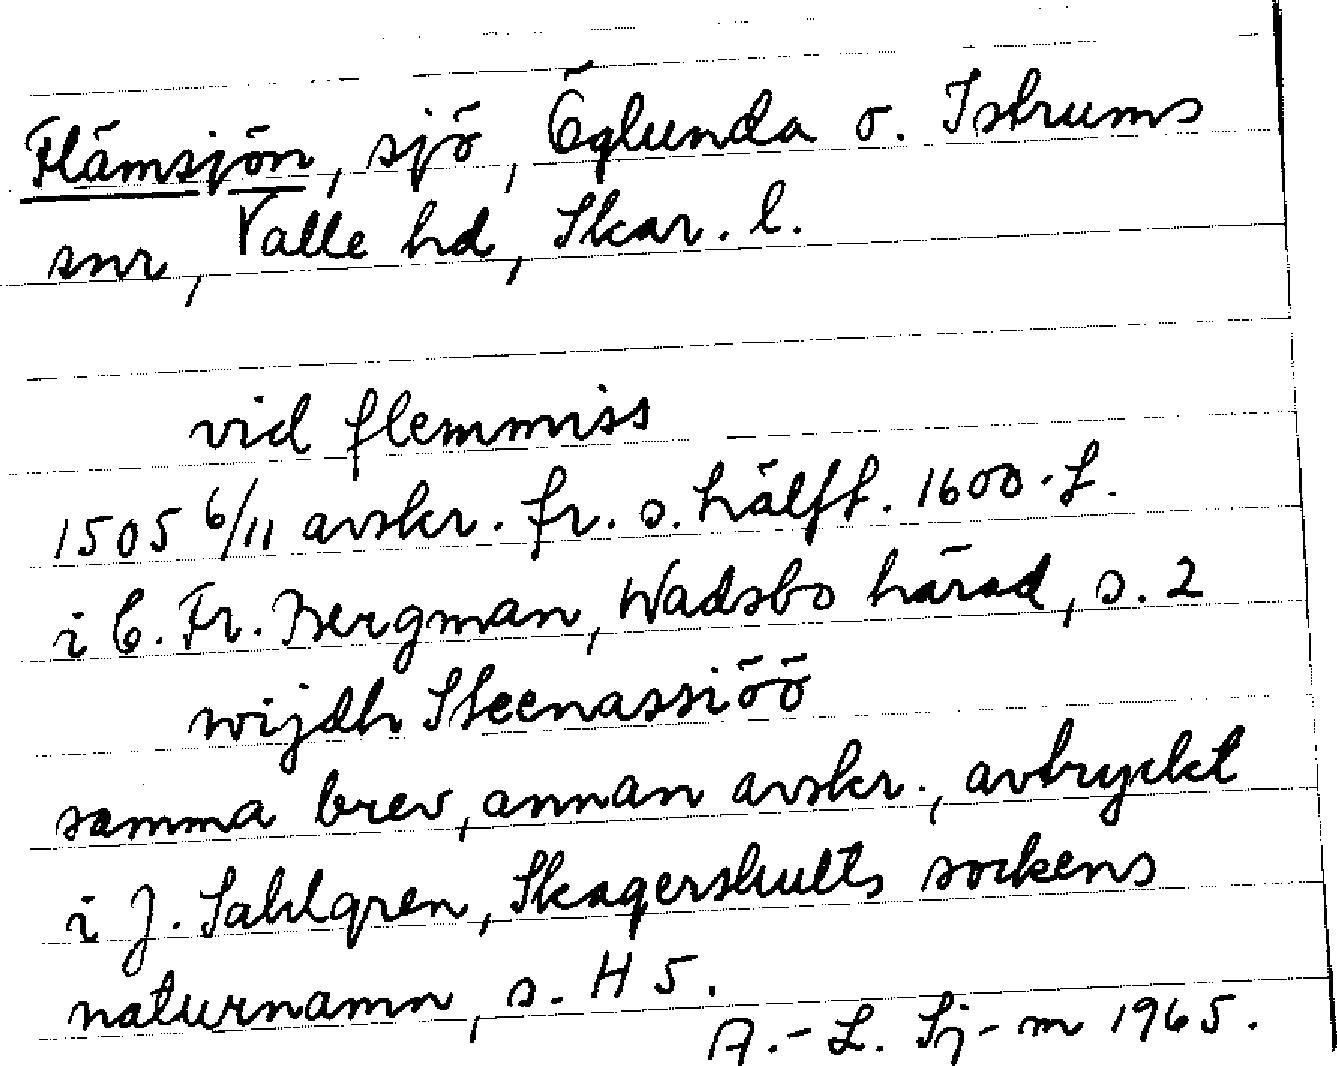 Flämsjön, sjö, Öglunda o. Istrums
snr, Valle hd, Skar. l.
vid flemmiss
1505 6/11 avskr. fr. s. hälft. 1600-t.
i C. Fr. Bergman, Wadsbo härad, s. 2
wijdh Steenassiöö
samma brev, annan avskr., avtryckt
i J. Sahlgren, Skagershults sockens
naturnamn, s. H 5.
A.-L. Sj-m 1965.